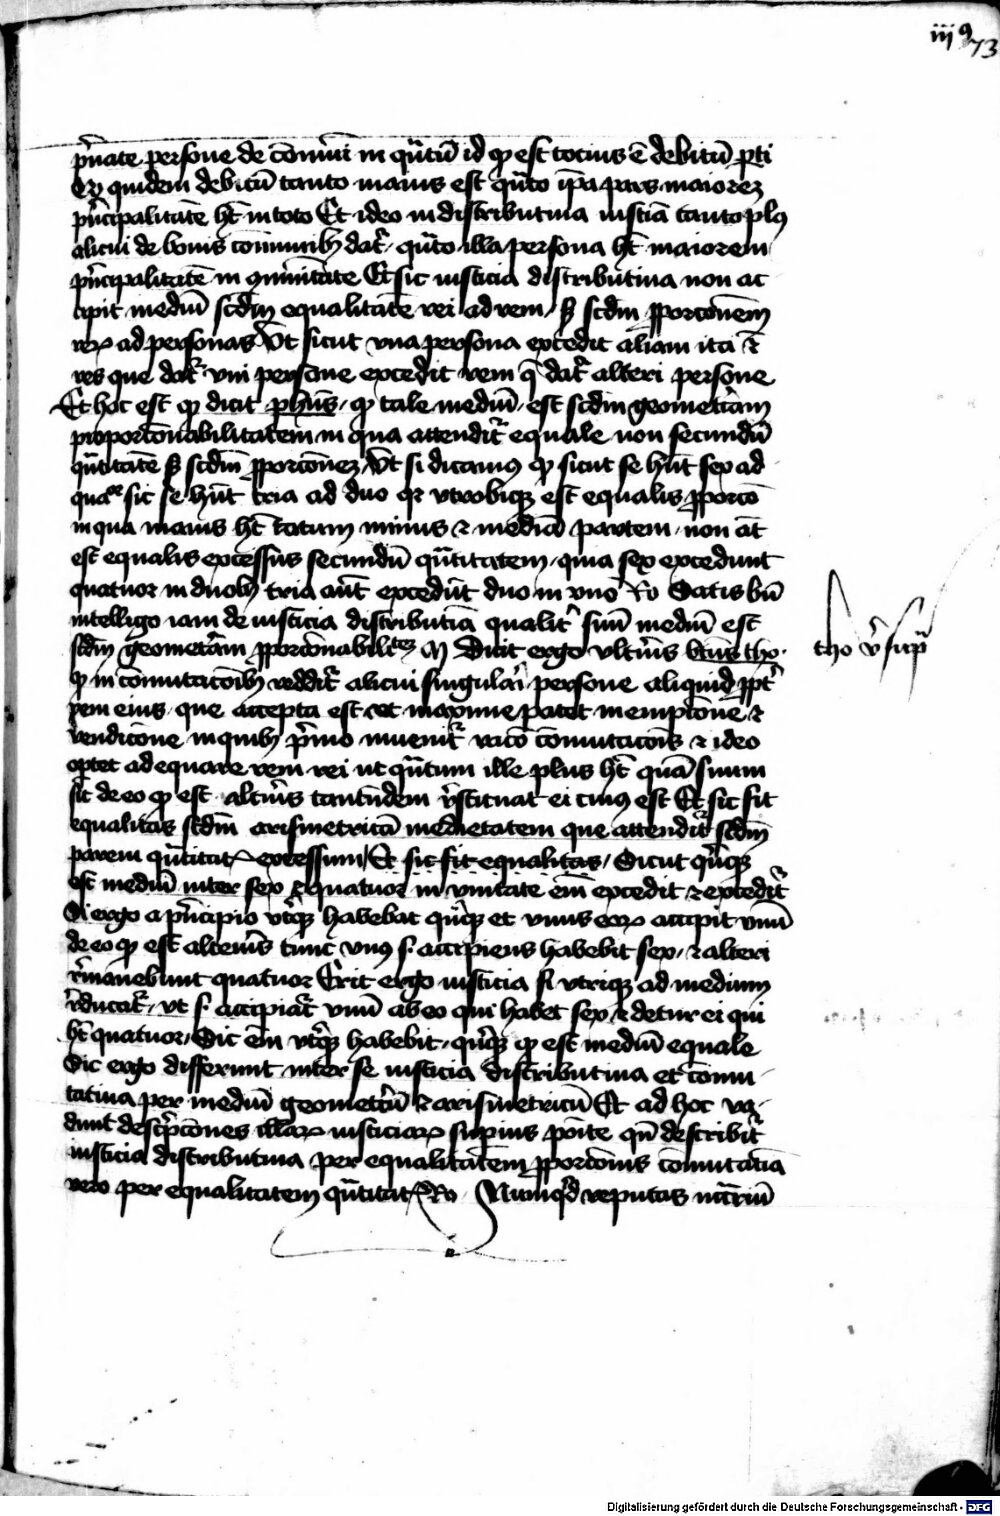 iij 9
73
p̄uate persone de cōmūi in q̄ntū id qd est tocius ē debitū p̱ti
Qd quidem debitū tanto maius est q̄nto ip̄a pars maiorez
p̄ncipalitatē hꝫ in toto Et ideo in distributiua iusticiā tanto plꝰ
alicui de bonis cōmunibꝫ dat᷑ q̄nto illa persona hꝫ maiorem
p̄ncipalitatē in ꝯmunitate Et sic iusticia distributiua non ac
cipit mediū scdm equalitatē rei ad rem sꝫ scdm ꝓporconem
reꝝ ad personas Vt sicut vna persona excedit aliam ita ⁊
res que dat᷑ vni persone excedit rem q̄ dat᷑ alteri persone
Et hoc est qd dicit ph̄us qd tale mediū est scdm geomet̄cam
proporconabilitatem in qua attendit᷑ equale non secundū
q̄ntitatē sꝫ scdm ꝓporconez Vt si dicamꝰ qd sicut se hn̄t sex ad
quatuor sic se hn̄t tria ad duo qr vtrobiqꝫ est equalis ꝓporcō
in qua maius hꝫ totum minus ⁊ mediā partem non aūt
est equalis excessus secundū q̄ntitatem quia sex excedunt
quatuor in duobꝫ tria aūt excedūt duo in vno Ro Satis bn̄
intelligo iam de iusticia distributiua qualit᷑ suū mediū est
scdm geomet̄cam ꝓporconabilitatez M Dicit ergo vltēius btūs tho.
tho v̄ sup̄
qd in cōmutacōibꝫ reddit᷑ alicui singulari persone aliquid ꝓpt᷑
rem eius que accepta est vt maxime patet in empcōne ⁊
vendicōne in quibꝫ p̄mo inuenit᷑ racō cōmutacōis ⁊ ideo
oꝑtet adequare rem rei ut q̄ntum ille plus hꝫ quā suum
sit de eo qd est altēius tantundem r̄stituat ei cuiꝰ est Et sic fit
equalitas scdm arismetricā medietatem que attendit᷑ scdm
parem q̄ntitatis excessum Et sic fit equalitas Sicut q̄nqꝫ
est mediū inter sex ⁊ quatuor in vnitate em̄ excedit ⁊ excedit᷑
Si ergo a p̄ncipio vt̄qꝫ habebat q̄nqꝫ et vnus eoꝝ accipit vnū
de eo qd est alteriꝰ tunc vnꝰ s. accipiens habebit sex ⁊ alteri
r̄manebunt quatuor Erit ergo iusticia si vtriqꝫ ad medium
r̄ducat᷑ vt s. accipiat᷑ vnū ab eo qui habet sex ⁊ detur ei qui
hꝫ quatuor Sic em̄ vt̄qꝫ habebit q̄nqꝫ qd est mediū equale
Sic ergo differunt inter se iusticia distributiua et cōmu
tatiua per mediū geomet̄cū ⁊ arismetricū Et ad hoc va
dunt descpcōnes illaꝝ iusticiaꝝ supius posite qn̄ describit᷑
iusticia distributiua per equalitatem ꝓporconis cōmutatiā
vero per equalitatem q̄ntitatis Ro Numqd reputas
Digitalisierung gefördert durch die Deutsche Forschungsgemeinschaft - DFG